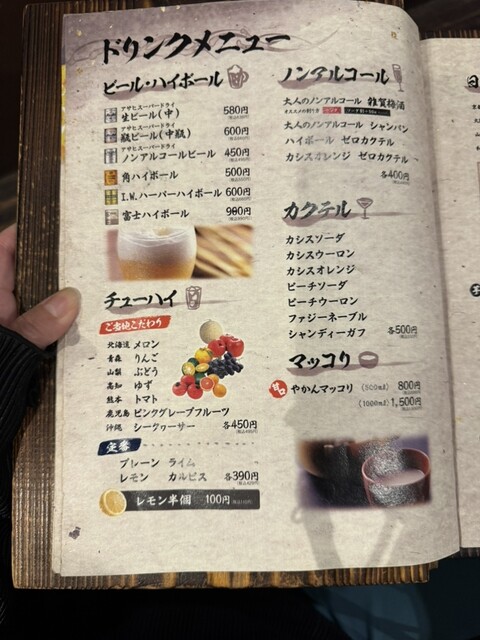 ドリンクメニュー
ビール・ハイボール
アサヒスーパードライ
生ビール(中) 580円
アサヒスーパードライ
瓶ビール(中瓶) 600円
アサヒスーパードライ
ノンアルコールビール 450円
角ハイボール 500円
I.W.ハーパーハイボール 600円
富士ハイボール 900円
チューハイ
ご当地こだわり
北海道 メロン
青森 りんご
山梨 ぶどう
高知 ゆず
熊本 トマト
鹿児島 ピンクグレープフルーツ
沖縄 シークヮーサー 各450円
定番
プレーン ライム
レモン カルピス 各390円
レモン半個 100円
ノンアルコール
大人のノンアルコール 雑賀梅酒
大人のノンアルコール シャンパン
ハイボール ゼロカクテル
カシスオレンジ ゼロカクテル
各400円
カクテル
カシスソーダ
カシスウーロン
カシスオレンジ
ピーチソーダ
ピーチウーロン
ファジーネーブル
シャンディーガフ 各500円
マッコリ
甘口 やかんマッコリ (500ml) 800円
(1000ml) 1,500円